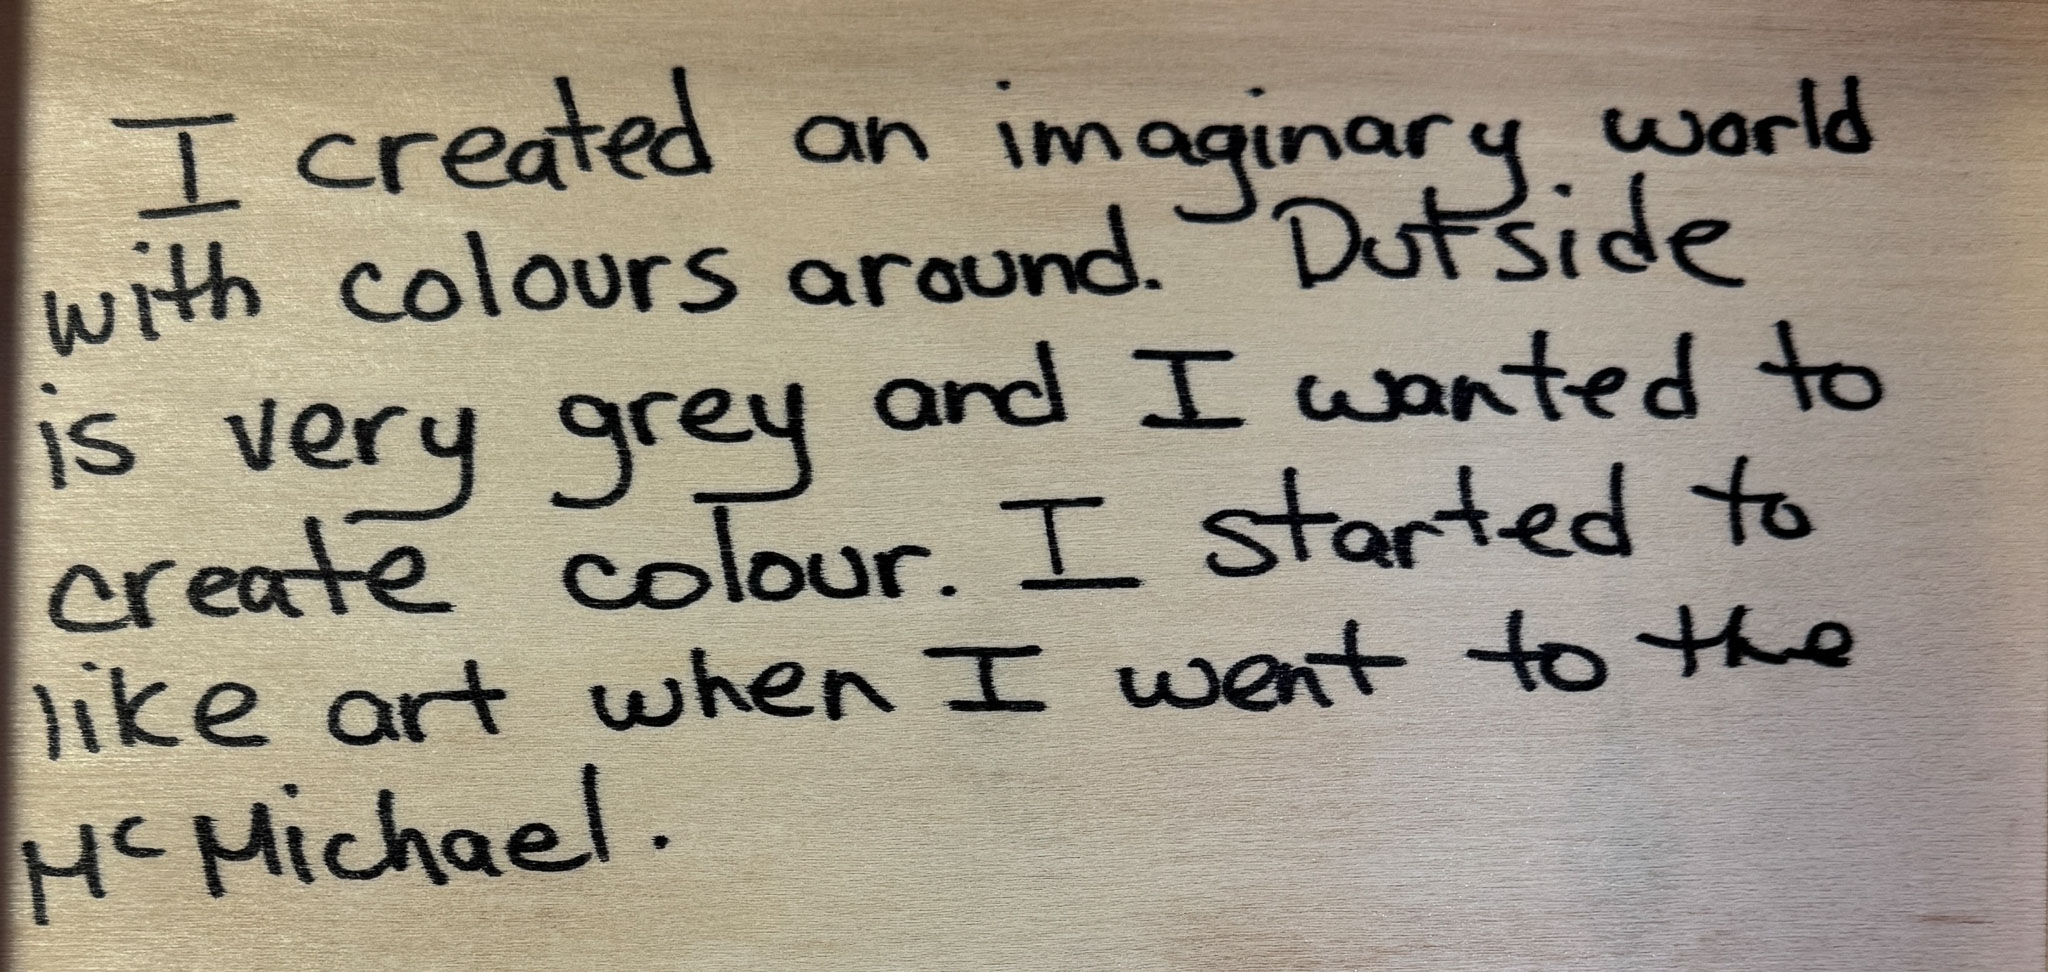 I created an imaginary world
with colours around. Outside
is very grey and I wanted to
create colour. I started to
like art when I went to the
McMichael.